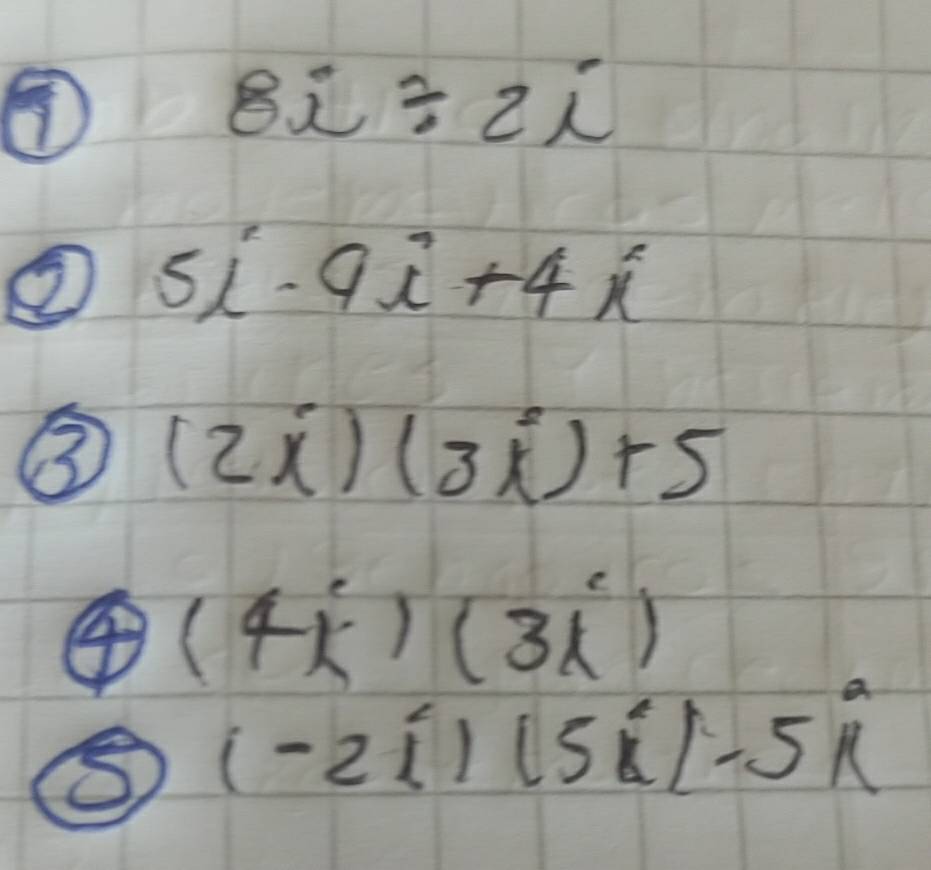 ① 8i ÷ 2i
② 5i - 9i + 4i
③ (2i)(3i) + 5
④ (4i)(3i)
⑤ (-2i)(5i) - 5i